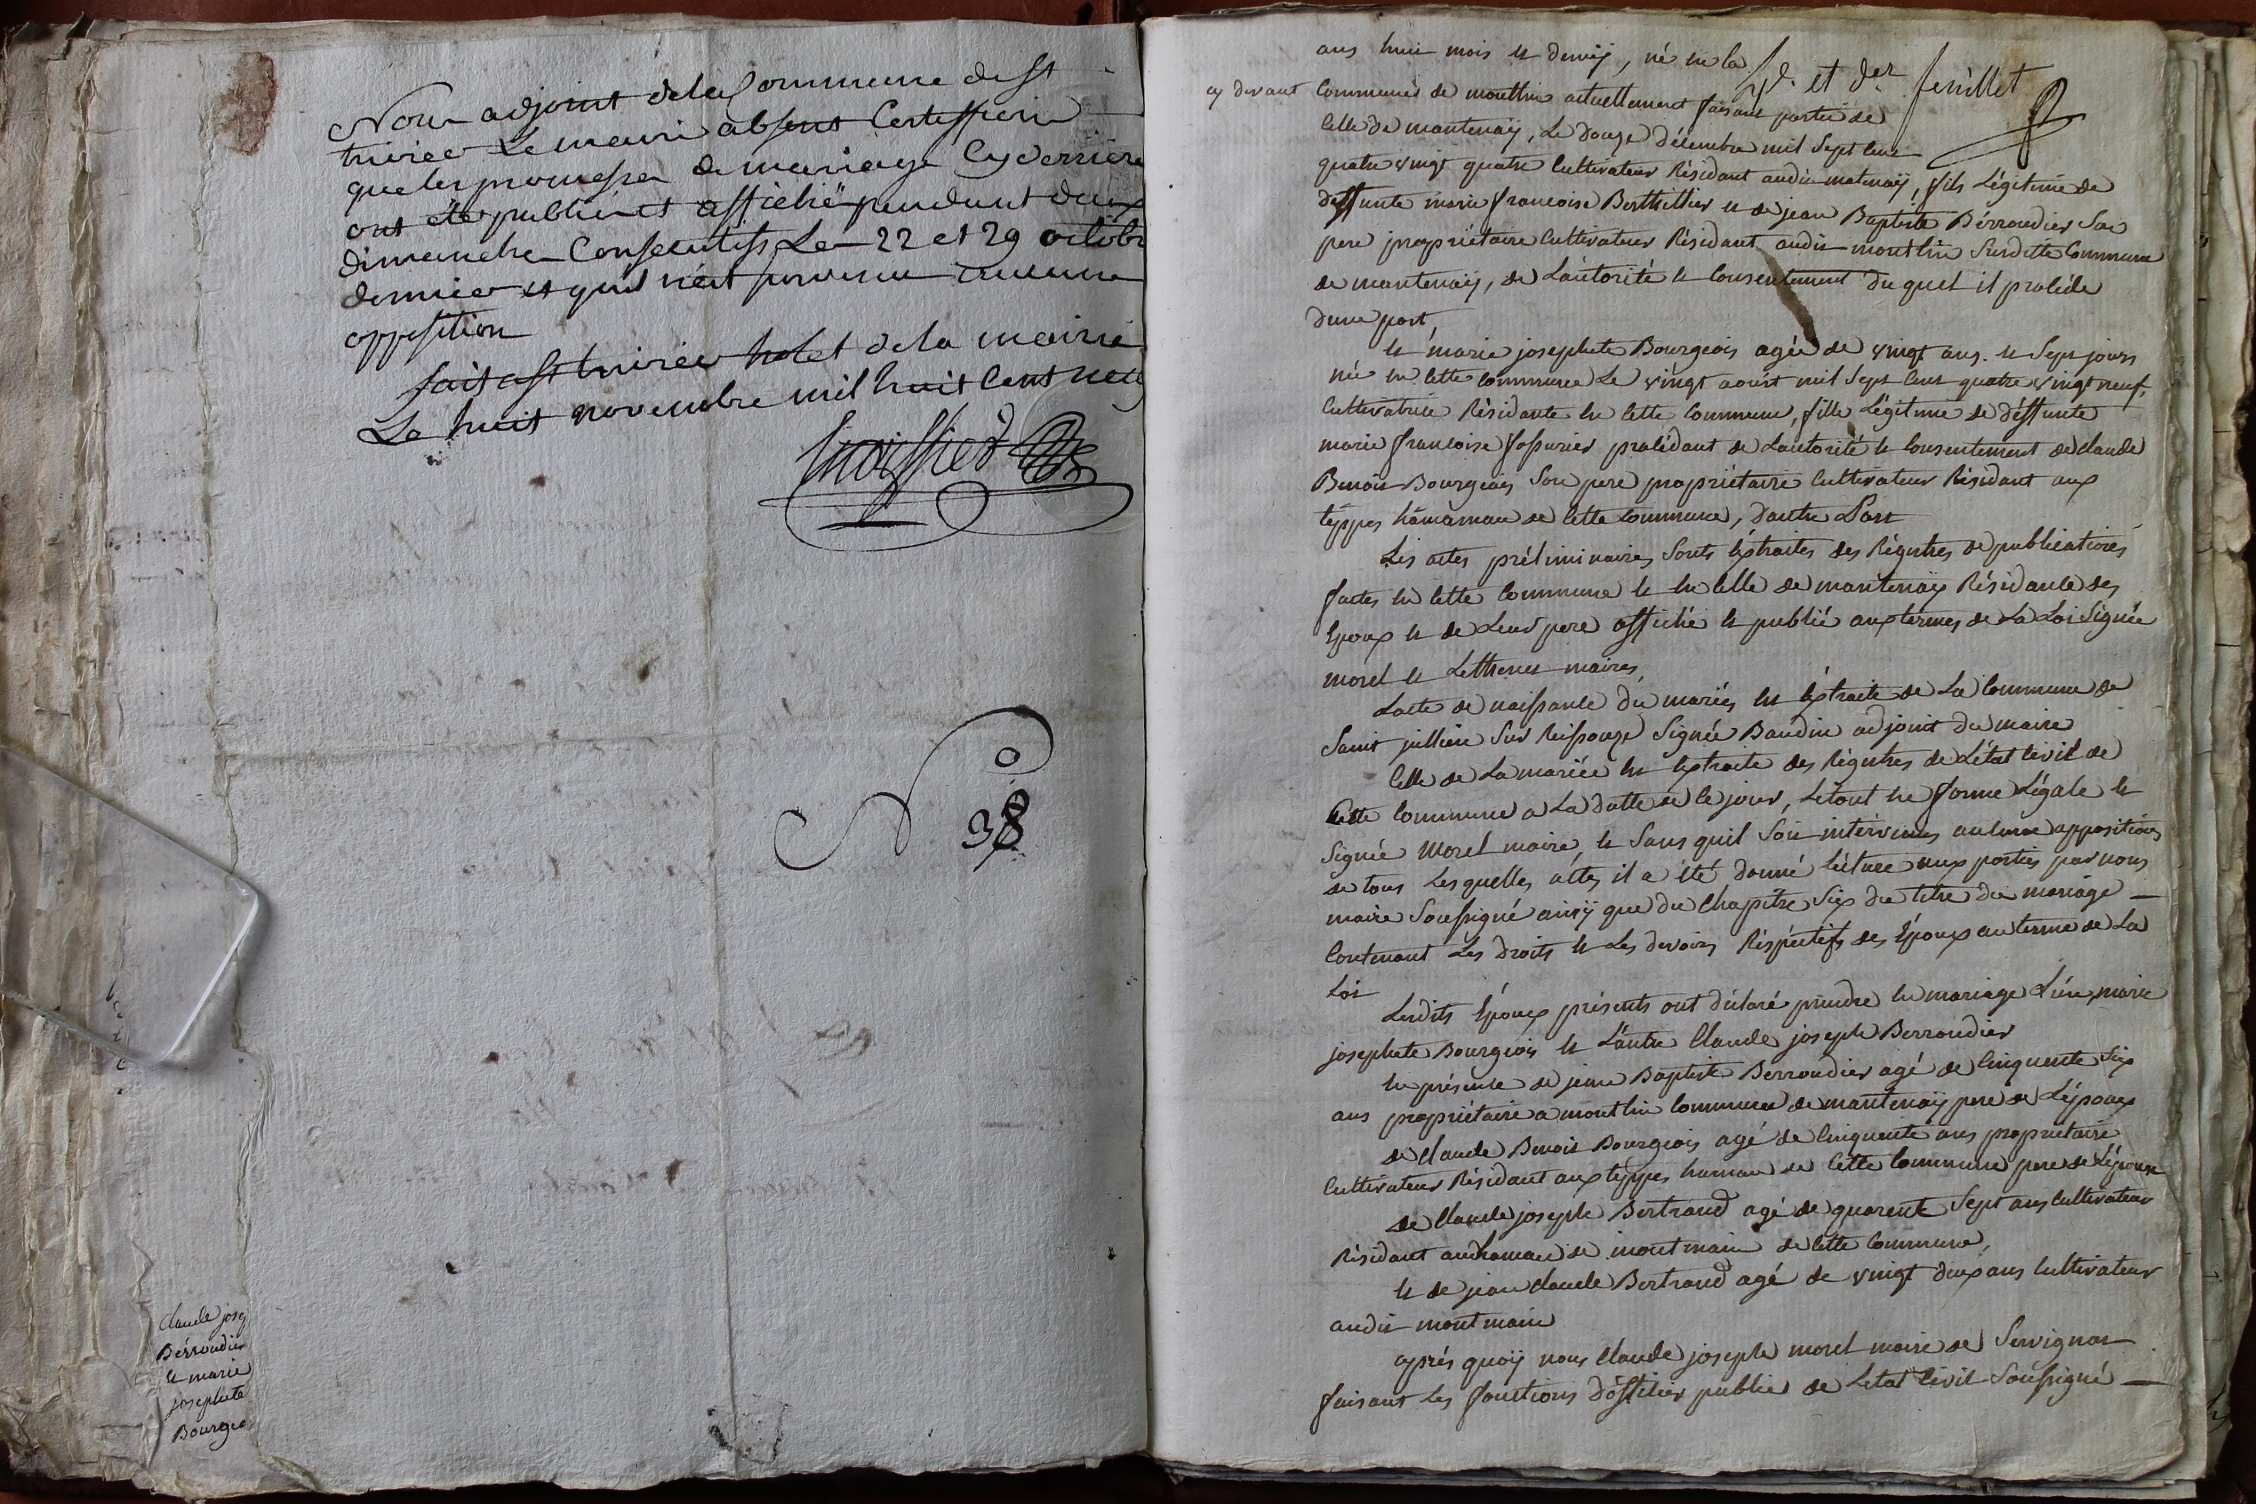 Nous adjoint de la Commune de St
trivier Le maire absent Certiffions
que les promesses de mariage Cy derriere
ont été publiéés et affichéë pendant deux
dimanche Consecutifs Le 22 et 29 octobr
dernier et quil n'est parvenu aucune
opposition
fait a St trivier hotel de la mairie
Le huit novembre mil huit Cent neuf
N° 38
Claude josep
Bérroudier
et marie
josephete
Bourgeo
ans huit mois et demÿ, né en la
cy devant Commune de montlin actuellement faisant partie de
2e. et der. feuillet
Celle de mantenaÿ, Le douze décembre mil Sept Cent
quatre vingt quatre Cultivateur Résidant audit matenaÿ, fils Légitime de
deffunte marie francoise Berthillier et de jean Baptiste Bérroudier Son
pere propriétaire Cultivateur Résidant audit montlin Susditte Commune
de mantenaÿ, de Lautorité et Consentement du quel il procéde
dune part,
et marie josephete Bourgeois agée de vingt ans et Sept jours
née en cette commune Le vingt aoust mil Sept Cent quatre vingt neuf,
Cultivatrice Résidante en Cette Commune, fille Légitime de déffunte
marie francoise procédant de Lautorité et Consentement de Claude
Benoit Bourgeois Son pere propriétaire Cultivateur Résidant aux
téppes hámamau de Cette Commune, dautre Part
Les actes préliminaires Sonts éxtraites des Régistres de publications
faites en Cette Commune et en Celle de mantenaÿ Résidance des
époux et de Leur pere affiché et publié aux termes de La Loi Signée
morel et maires,
Lacte de naissance du mariés est éxtraite de La Commune de
Saint jullien Sur Reissouze Signée Baudin adjoint du maire
Celle de La mariée est éxtraite des Régistres de L'état Civil de
Cette Commune a La datte de Ce jour, Le tout en forme Légale et
Signée Morel maire et Sans quil Soit intérvenus aucune oppositions
de tous Lesquelles actes il a été donné Lécture aux parties par nous
maire Soussigné ainsÿ que du Chapitre Six du titre du mariage
Contenant Les droits et Les devoirs Réspéctifs des époux au terme de La
Loi
Lesdits époux présents ont déclaré prendre en mariage L'un marie
josephete Bourgeois et L'autre Claude joseph Berroudier
En présence de jean Baptiste Berroudier agé de Cinquente Six
ans propriétaire a montlin Commune de mantenaÿ pere de L'époux
de Claude Benoit Bourgeois agé de Cinquente ans propriétaire
Cultivateur Résidant aux téppes hamau de Cette Commune pere de L'épouse
de Claude joseph Bertrand agé de quarente Sept ans Cultivateur
Résidant audhamau de montmain de Cette Commune,
et de jean Claude Bertrand agé de vingt deux ans Cultivateur
audit montmain
après quoÿ nous Claude joseph morel maire de Servignat
faisant Les fonctions dófficier public de Létat Civil Soussigné